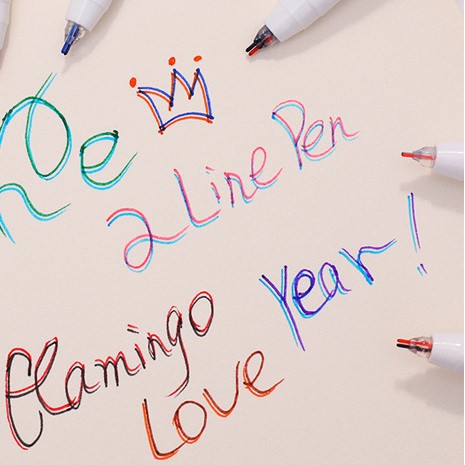 2 Line Pen
Year!
flamingo
Love